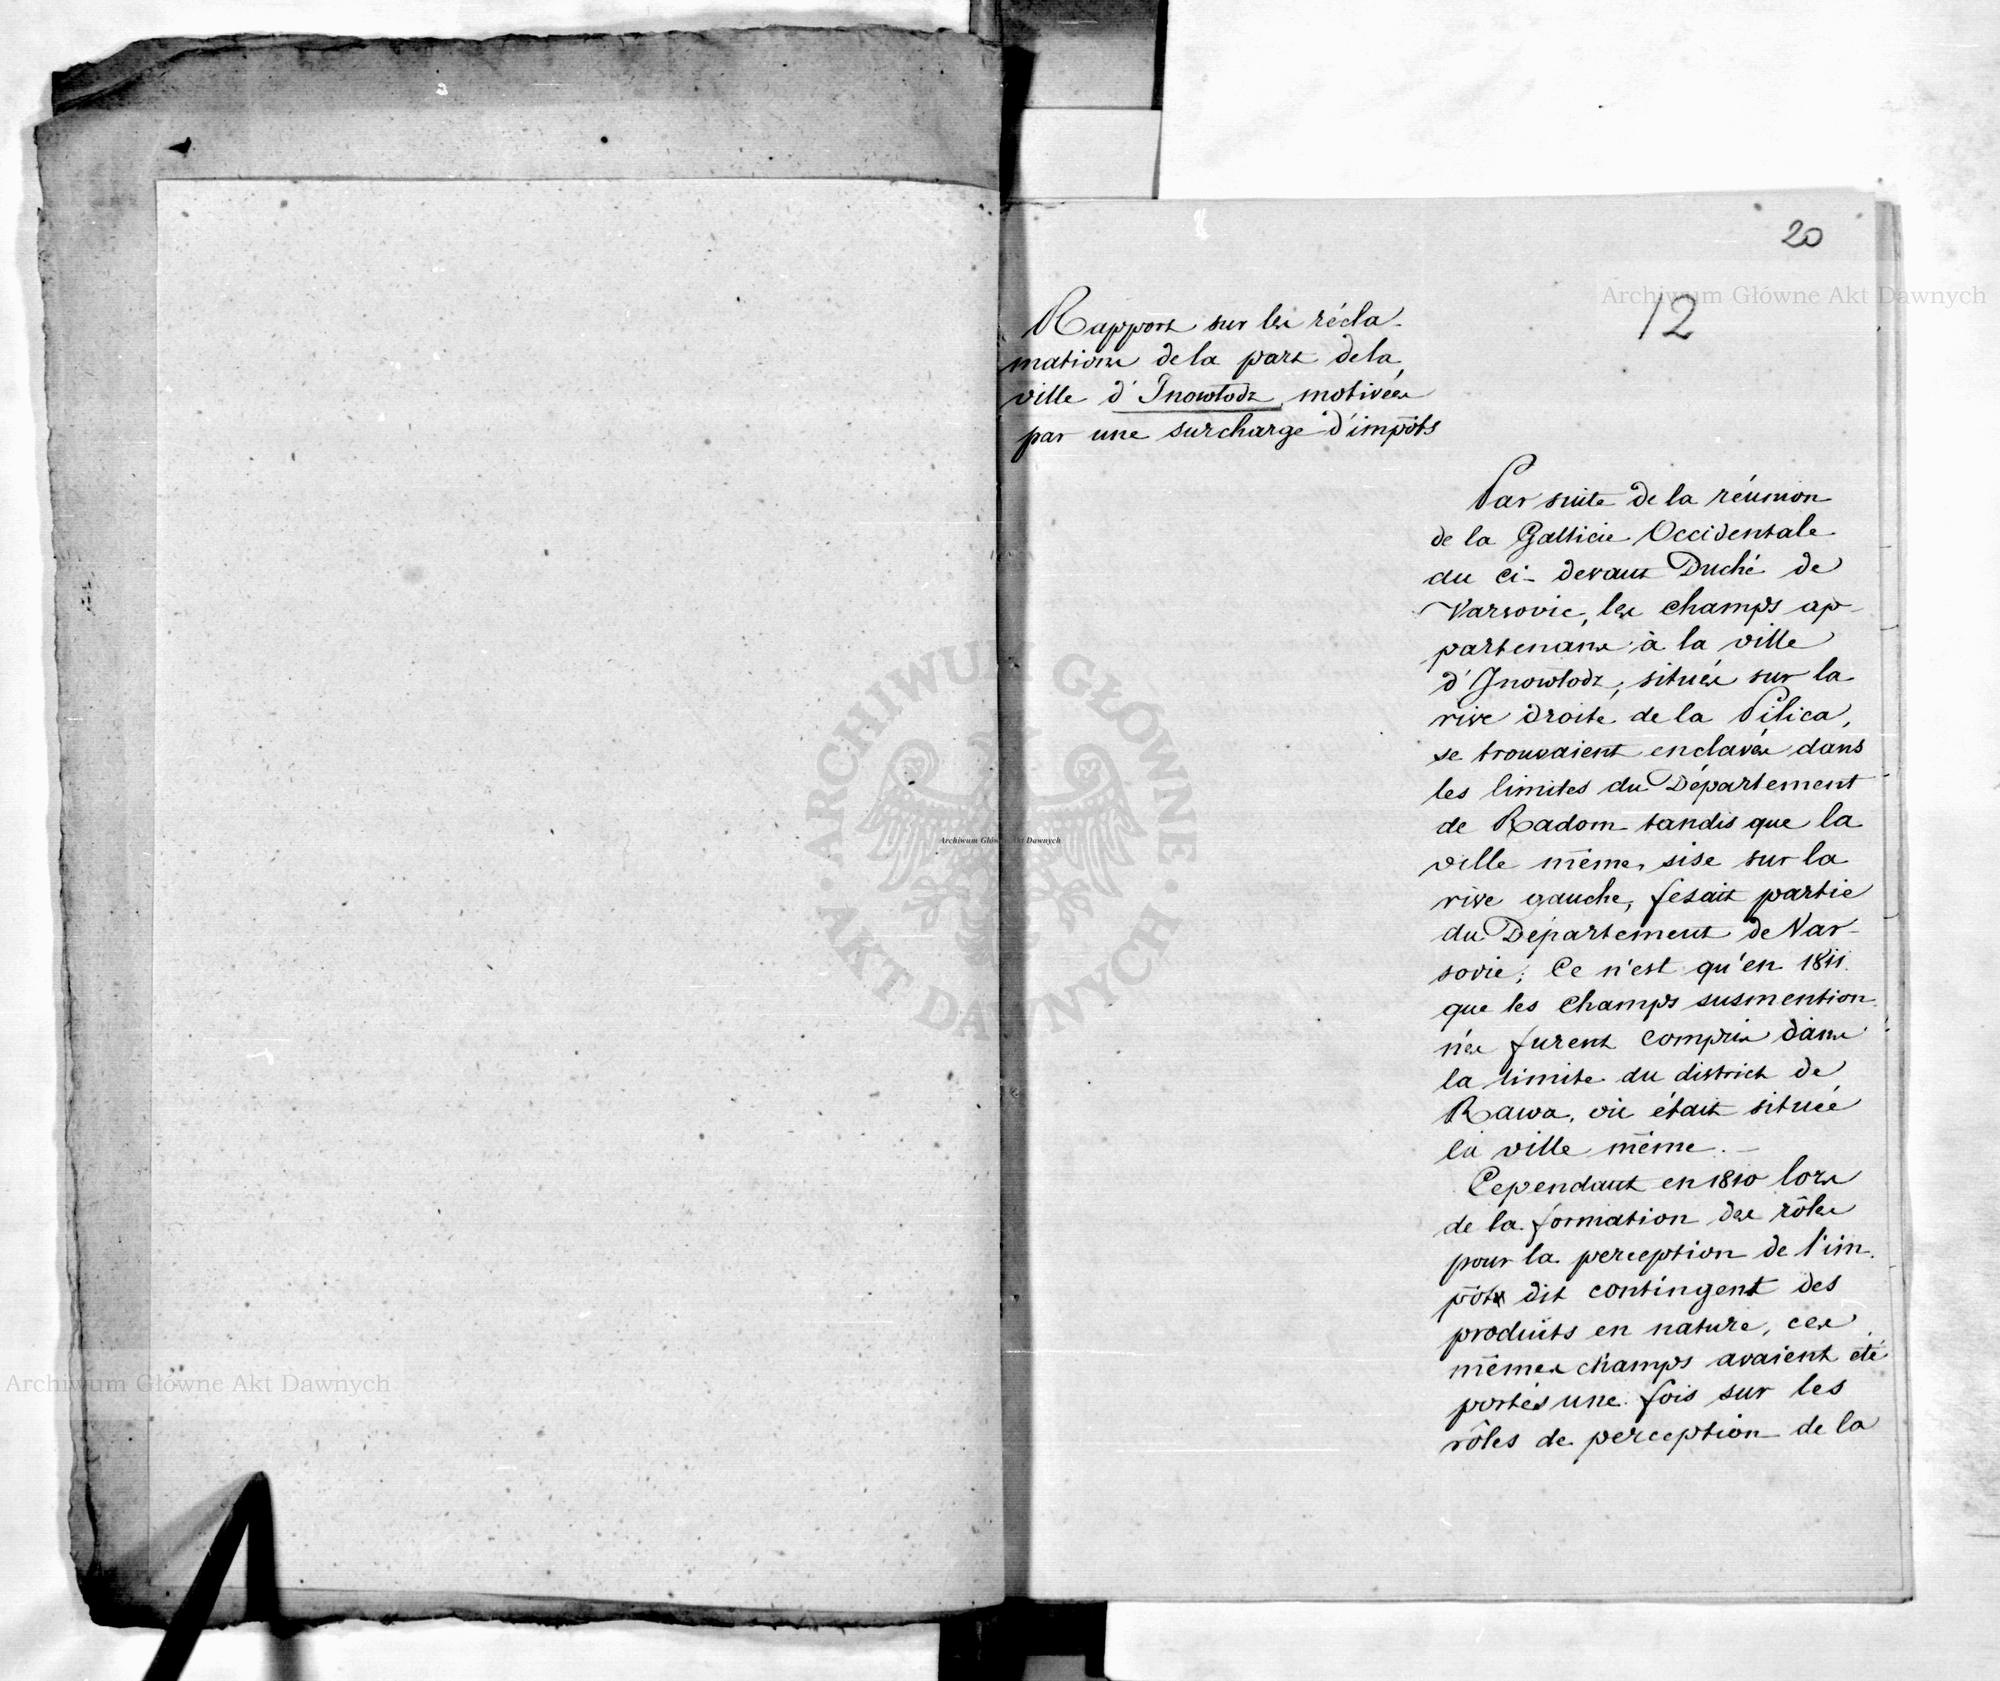 20
12
Rapport sur les récla-
mations de la part de la
ville d'Inowłodz, motivées
par une surcharge d'impôts
Par suite de la réunion
de la Gallicie Occidentale
au ci-devant Duché de
Varsovie, les champs ap-
partenans à la ville
d'Inowłodz, situés sur la
rive droite de la Pilica,
se trouvaient enclavés dans
les limites du Département
de Radom tandis que la
ville même, sise sur la
rive gauche, fesait partie
du Département de Var-
sovie; Ce n'est qu'en 1811
que les champs susmention-
nés furent compris dans
la limite du district de
Rawa, où était située
la ville même. —
Cependant en 1810 lors
de la formation des rôles
pour la perception de l'im-
pôt dit contingent des
produits en nature, ces
mêmes champs avaient été
portés une fois sur les
rôles de perception de la
Archiwum Główne Akt Dawnych
ARCHIWUM GŁÓWNE
AKT DAWNYCH
Archiwum Główne Akt Dawnych
Archiwum Główne Akt Dawnych